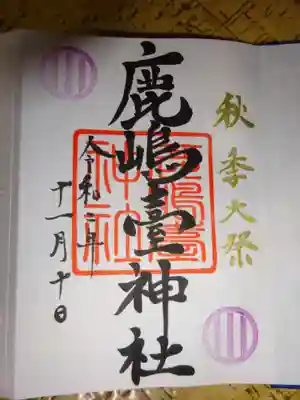 秋季大祭
鹿嶋臺神社
令和二年
十一月十日
鹿嶋臺
神社